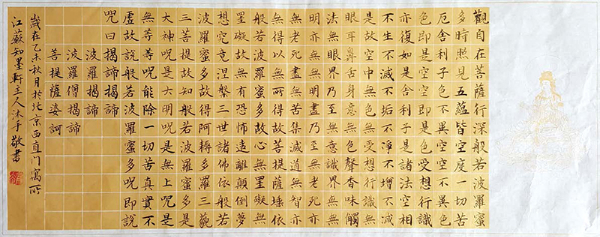 觀自在菩薩行深般若波羅蜜
多時照見五蘊皆空度一切苦
厄舍利子色不異空空不異色
色即是空空即是色受想行識
亦復如是舍利子是諸法空相
不生不滅不垢不淨不增不減
是故空中無色無受想行識無
眼耳鼻舌身意無色聲香味觸
法無眼界乃至無意識界無無
明亦無無明盡乃至無老死亦
無老死盡無苦集滅道無智亦
無得以無所得故菩提薩埵依
般若波羅蜜多故心無罣礙無
罣礙故無有恐怖遠離顛倒夢
想究竟涅槃三世諸佛依般若
波羅蜜多故得阿耨多羅三藐
三菩提故知般若波羅蜜多是
大神呪是大明呪是無上呪是
無等等呪能除一切苦真實不
虛故說般若波羅蜜多呪即說
呪曰揭諦揭諦
波羅揭諦
波羅僧揭諦
菩提薩婆訶
歲在乙未秋月於北京西直門寓所
江蘇知墨軒主人法平敬書